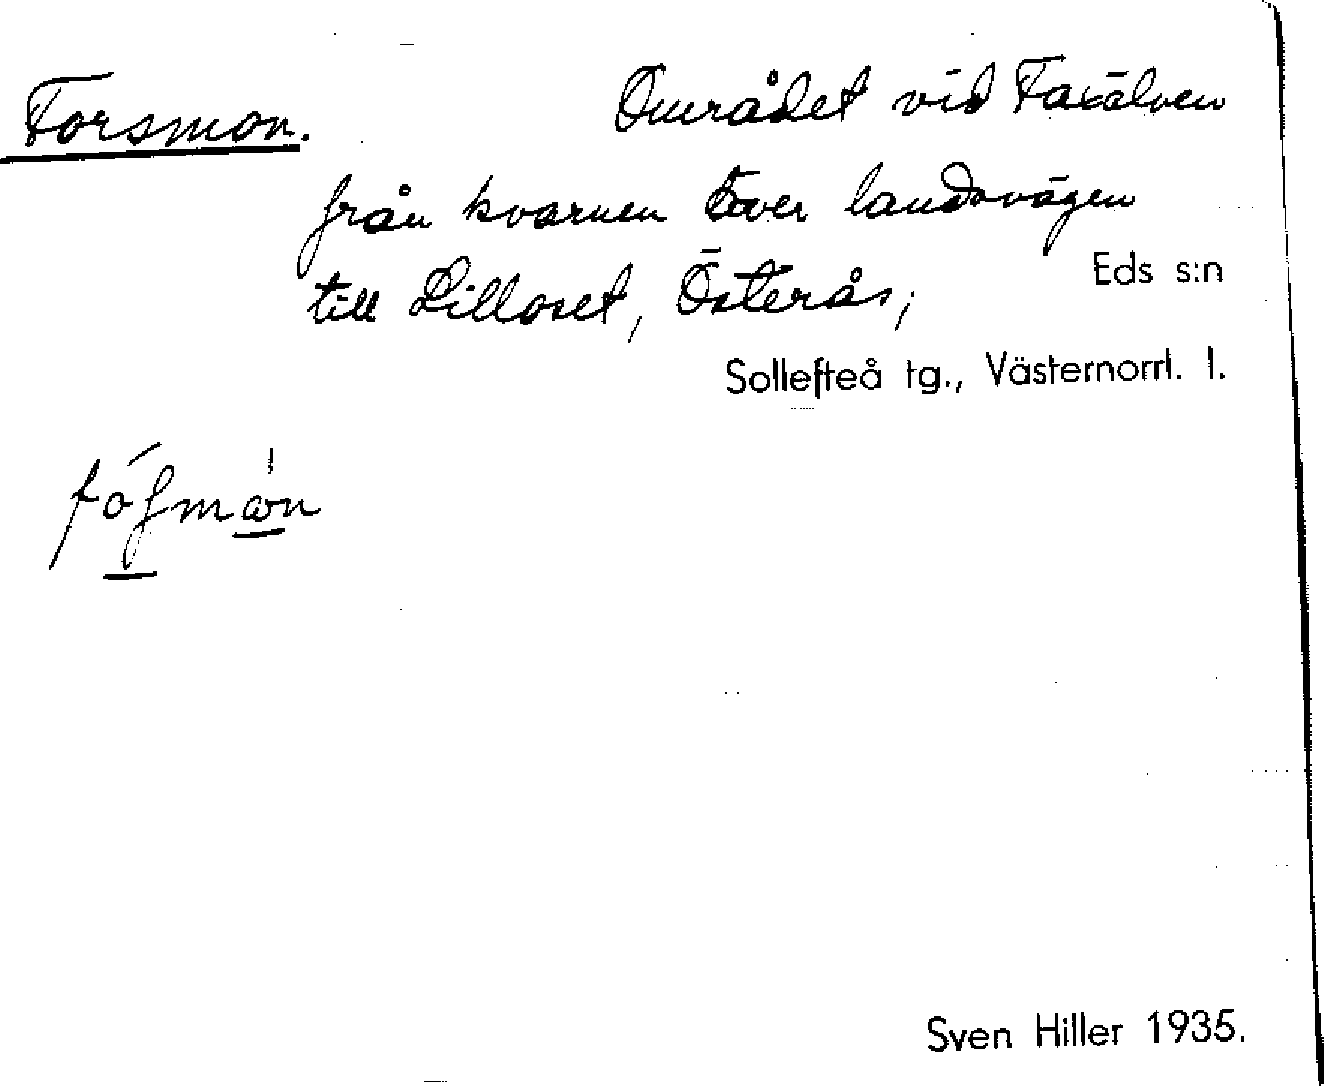 Forsmon. Området vid Faxälven
från kvarnen över landsvägen
till Lilloset, Österås,
Eds s:n
Sollefteå tg., Västernorrl. l.
Sven Hiller 1935.